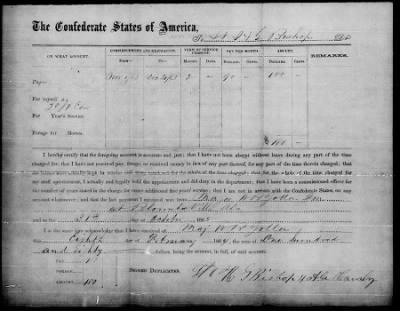 The Confederate States of America,
To Lt H G Bishop Dr.
ON WHAT ACCOUNT.
COMMENCEMENT AND EXPIRATION.
TERM OF SERVICE CHARGED.
PAY PER MONTH.
AMOUNT.
REMARKS.
FROM— TO— Months. Days. Dollars. Cents. Dollars. Cents.
Pay—
2 90 180
For myself as
For Years' Service
Forage for Horses
$180
I hereby certify that the foregoing account is accurate and just; that I have not been absent without leave during any part of the time
charged for; that I have not received pay, forage, or received money in lieu of any part thereof, for any part of the time therein charged; that
the horses were actually kept in service and were mustered for the whole of the time charged; that for the whole of the time charged for
my staff appointment, I actually and legally held the appointment and did duty in the department; that I have been a commissioned officer for
the number of years stated in the charge for every additional five years' service; that I am not in arrears with the Confederate States, on any
account whatsoever; and that the last payment I received was from Maj
at
and to the 31st day of October 186
I at the same time acknowledge that I have received of Maj
this Eighth day of February 1864, the sum of One hundred
and Eighty dollars, being the amount, in full, of said account.
PAY,
FORAGE,
AMOUNT, 180
SIGNED DUPLICATES.
H G Bishop 4 Ala Cavalry